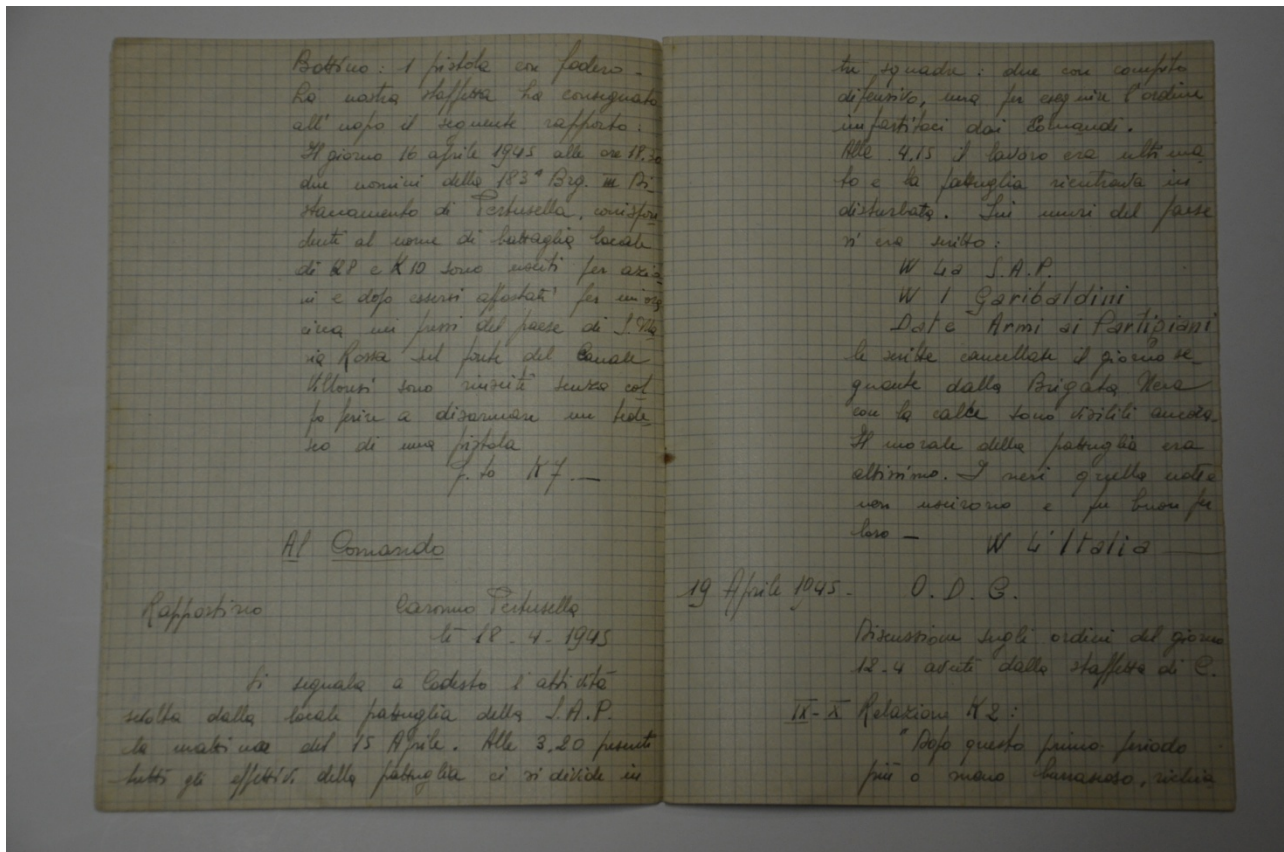 Bottino: 1 pistola con fodero -
La nostra staffetta ha consegnato
all'uopo il seguente rapporto:
Il giorno 16 aprile 1945 alle ore 18.30
due uomini della 183ª Brg. Di-
staccamento di Pertusella, corrispon
denti al nome di battaglia locale
di K8 e K10 sono usciti per azio
ni e dopo essersi appostati per un'ora
circa nei pressi del paese di S. Ma
ria Rossa sul ponte del Canale
Villoresi sono riusciti senza col
po ferire a disarmare un tede
sco di una pistola
f.to K7.—
Al Comando
Rapportino
Caronno Pertusella
li 18-4-1945
Si segnala a Codesto l'attività
svolta dalla locale pattuglia della S.A.P.
la mattina del 15 Aprile. Alle 3,20 presenti
tutti gli effettivi della pattuglia ci si divide in
tre squadre: due con compito
difensivo, una per eseguire l'ordine
impartitoci dai Comandi.
Alle 4.15 il lavoro era ultima
to e la pattuglia rientrata in
disturbata. Sui muri del paese
si era scritto:
W La S.A.P.
W I Garibaldini
Date Armi ai Partigiani
le scritte cancellate il giorno se-
guente dalla Brigata Nera
con la calce sono visibili ancora.
Il morale della pattuglia era
altissimo. I neri quella notte
non uscirono e fu buon per
loro — W L'Italia
19 Aprile 1945. O.D.G.
Discussione sugli ordini del giorno
12-4 avuti dalla staffetta di C.
IX-X Relazione K2:
"Dopo questo primo periodo
più o meno burrascoso, richia